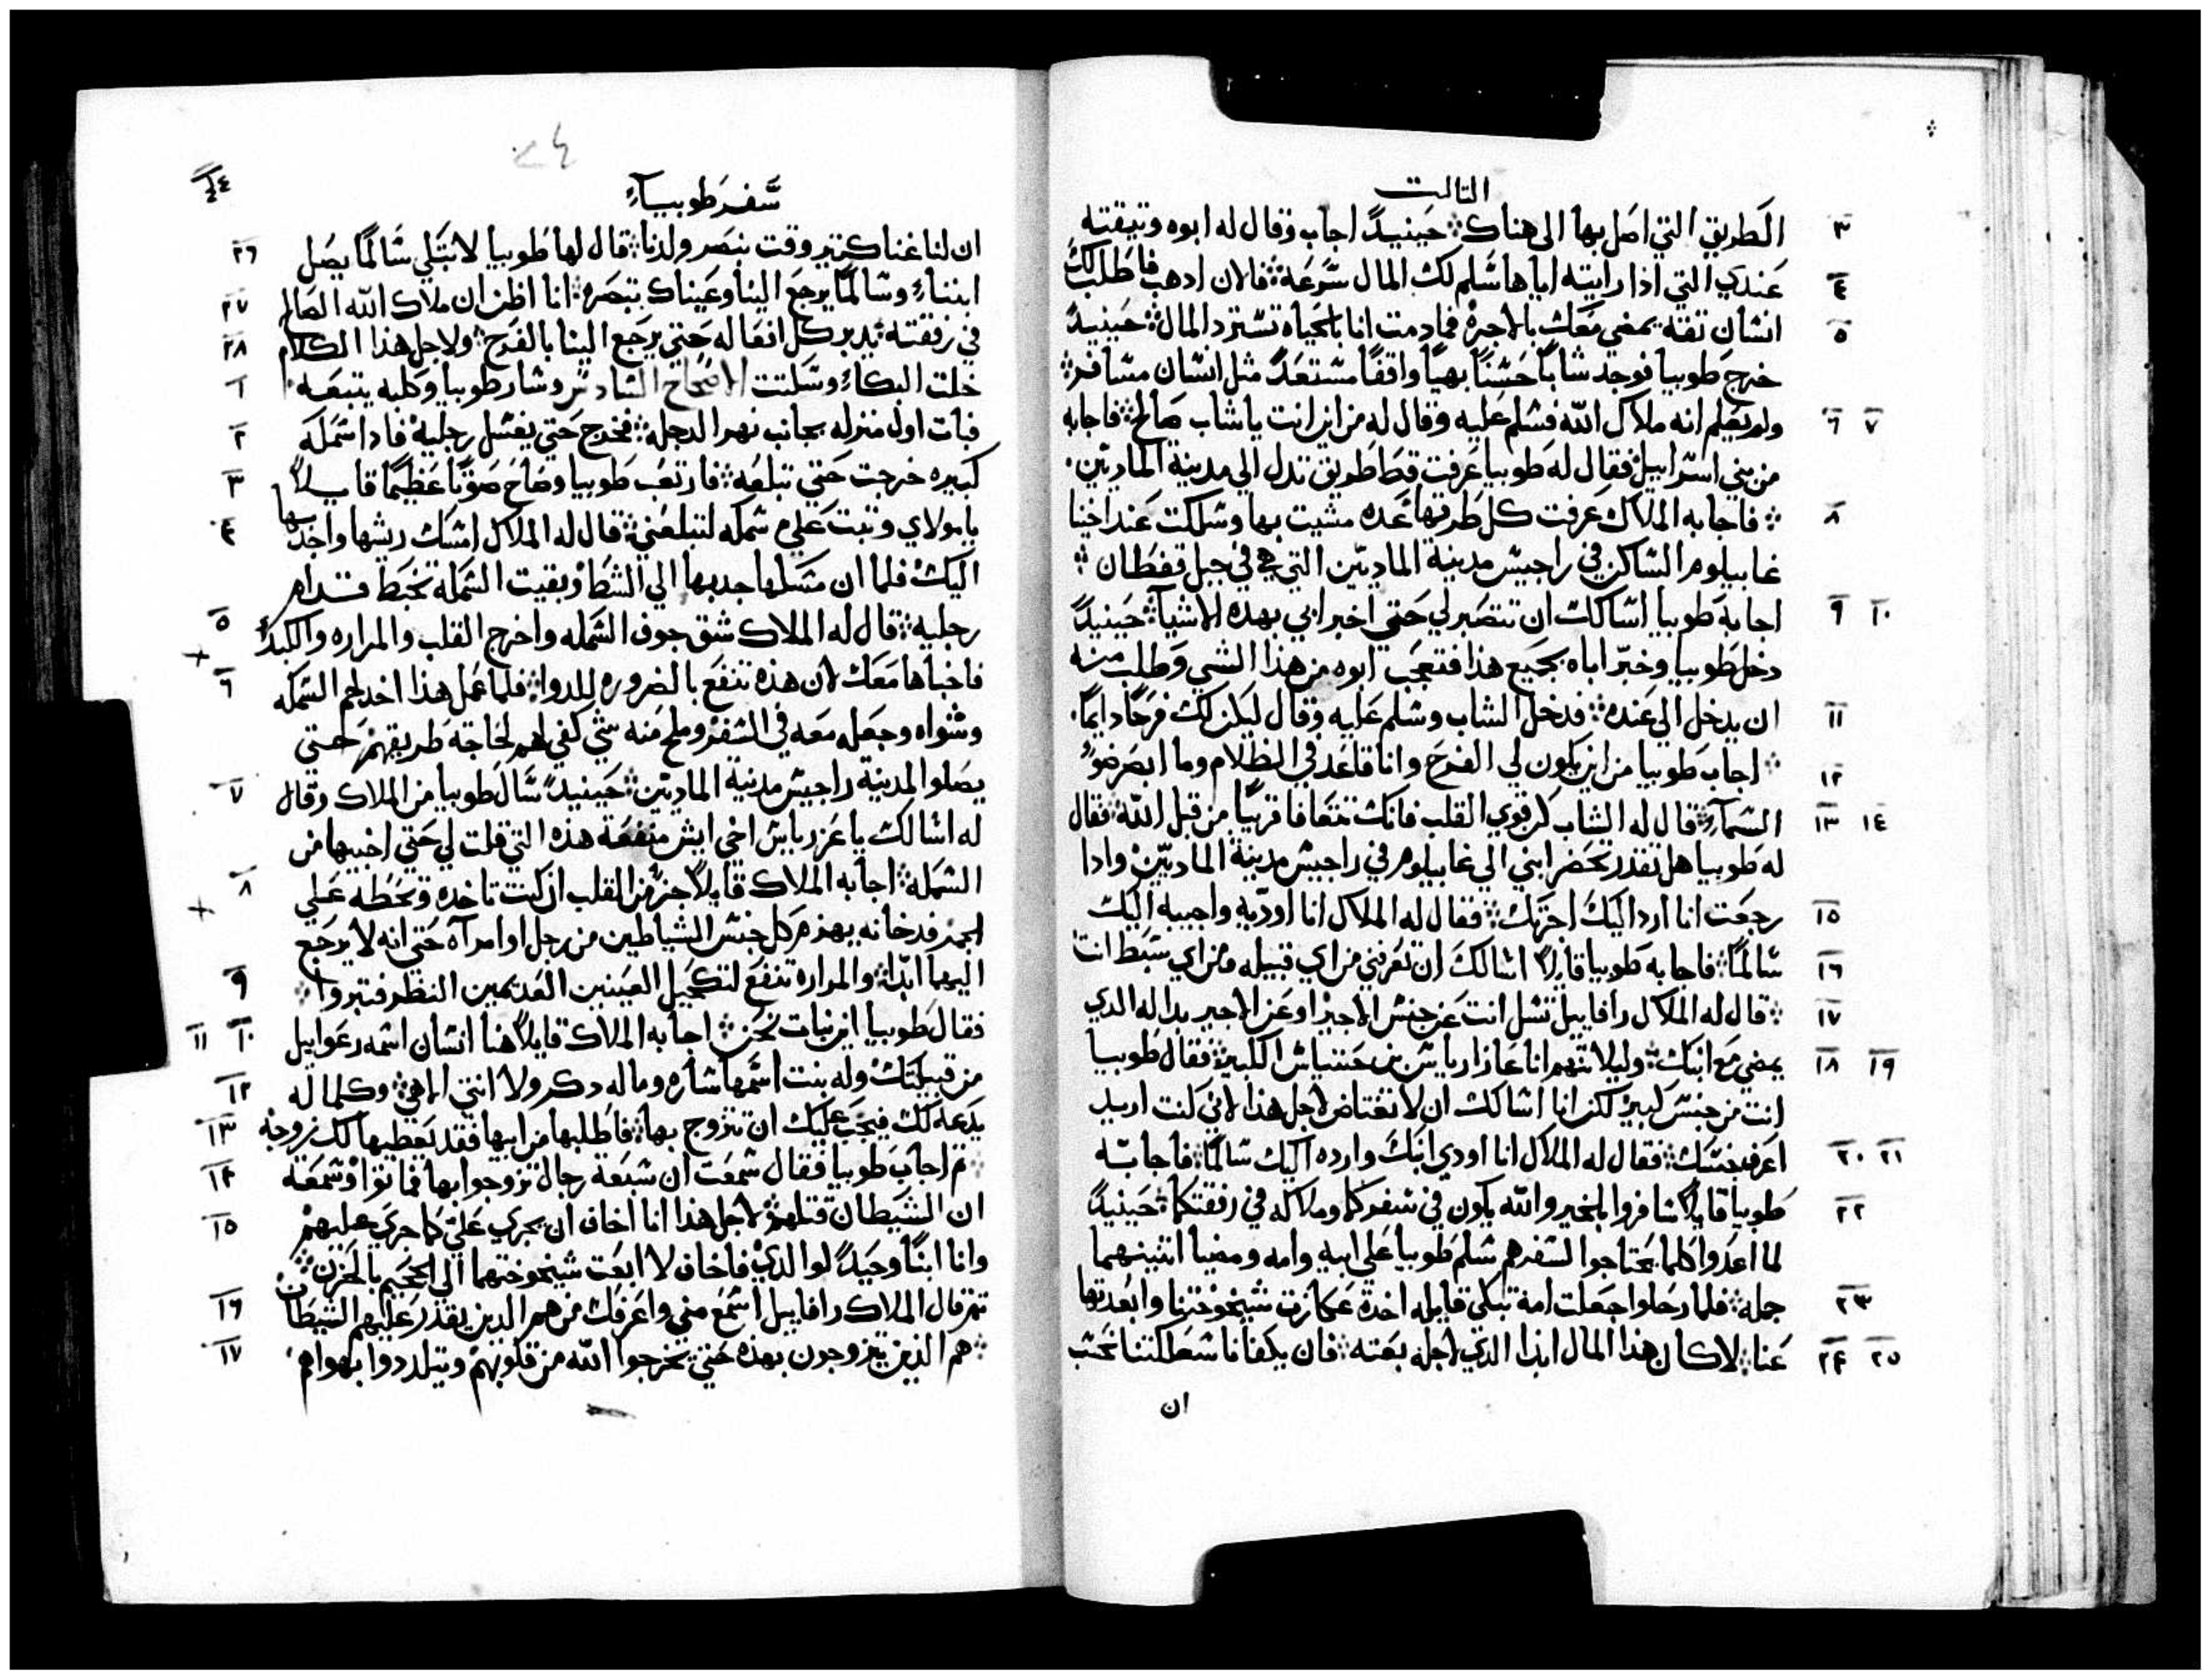 التالت
الطريق التي اصل بها الى هناك܀ حينيدً اجاب وقال له ابوه وتيقته
٣
عندي التي ادا رايته اياها سلم لك المال سرعة܀ فالان ادهب فاطلب لك
٤
انسان تقه يمضي معك بالاجرة فمادمت انا بالحياه تسترد المال܀ حينيدً
٥
خرج طوبيا فوجد شاباً حسناً بهياً واقفاً مستعداً مثل انسان مسافر܀
ولم يعلم انه ملاك الله فسلم عليه وقال له من اين انت يا شاب صالح܀ فاجابه
٦ ٧
من بني اسراييل܀ فقال له طوبيا عرفت قط طريق تدل الي مدينة الماديين.
܀ فاجابه الملاك عرفت كل طرقها عده مشيت بها وسلكت عند اخينا
٨
غابيلوم الساكن في راجيس مدينة الماديين التي هي في جبل تقطان܀
اجابه طوبيا اسالك ان تتصبر لي حتي اخبر ابي بهده الاشيا܀ حينيدً
٩ ١٠
دخل طوبيا وخبر اباه بجميع هذا فتعجب ابوه من هذا الشي وطلب منه
ان يدخل الى عنده܀ فدخل الشاب وسلم عليه وقال ليكن لك فرحاً دايماً.
١١
܀ اجاب طوبيا من اين يكون لي الفرح وانا قاعد في الظلام وما ابصر ضوء
١٢
السماء܀ قال له الشاب كن قوي القلب فانك تتعافا قريباً من قبل الله܀ فقال
١٣ ١٤
له طوبيا هل تقدر تحضر ابني الي غابيلوم في راجيس مدينة الماديين وادا
رجعت انا ارد اليك اجرتك܀ فقال له الملاك انا اوديه واجيبه اليك
١٥
سالماً܀ فاجابه طوبيا قايلاً اسالك ان تعرفني من اي قبيله ومن اي سبط انت
١٦
܀ قال له الملاك رافاييل تسل انت عن جنس الاجير او عن الاجير بداله الدي
١٧
يمضي مع ابنك܀ وليلا تتهم انا عازارياس بن حننياس الكبير܀ فقال طوبيا
١٨ ١٩
انت من جنس كبير لكن انا اسالك ان لا تغتاض لاجل هذا لاني كنت اريد
اعرف جنسك܀ فقال له الملاك انا اودي ابنك وارده اليك سالماً܀ فاجابه
٢٠ ٢١
طوبيا قايلاً سافروا بالخير والله يكون في سفركما وملاكه في رفقتكما܀ حينيدً
٢٢
لما اعدوا كلما يحتاجوا لسفرهم سلم طوبيا على ابيه وامه ومضيا اتنينهما
جمله܀ فلما رحلوا جعلت امه تبكي قايله اخدة عكازت شيخوختنا وابعدتها
٢٣
عنا܀ لا كان هذا المال ابدا الدي لاجله بعته܀ فان يكفانا شظاكتنا نحسب
٢٤ ٢٥
ان
سفر طوبياء
٤٤
ان لنا غناً كتير وقت ننصر ولدنا܀ قال لها طوبيا لا تبكي سالماً يصل
٢٦
ابننا وسالماً يرجع الينا وعيناك تبصره܀ انا اظن ان ملاك الله الصالح
٢٧
في رفقته يدبر كل افعاله حتي يرجع الينا بالفرح܀ ولاجل هذا الكلام
٢٨
خلت البكاء وسكتت الاصحاح السادس وسار طوبيا وكلبه يتبعه܀
١
فبات اول منزله بجانب نهر الدجله܀ فخرج حتي يغسل رجليه فادا سمكه
٢
كبيره خرجت حتي تبلعه܀ فارتعب طوبيا وصاح صوتاً عظيماً قايلاً
٣
يا مولاي وتبت علي سمكه لتبلعني܀ قال له الملاك امسك ريشها واجدبها
٤
اليك فلما ان مسكها جدبها الي الشط وبقيت السمكة تخبط قدام
رجليه܀ قال له الملاك شق جوف السمكه واخرج القلب والمراره والكبد
٥
فاخباها معك لان هذه تنفع بالضروره للدوا܀ فلما عمل هذا اخد لحم السمكه
٦
وشواه وجعله معه في السفر وملح منه شي كفي لهم لحاجة طريقهم حتي
يصلوا لمدينة راجيس مدينة الماديين܀ حينيدً سال طوبيا من الملاك وقال
٧
له اسالك يا عزرياس اخي ايش منفعة هذه التي قلت لي حتي اخبيها من
السمكه܀ اجابه الملاك قايلاً جزء من القلب ان كنت تاخده وتحطه علي
٨
الجمر فدخانه يهزم كل جنس الشياطين من رجل او امرآه حتي انه لا يرجع
اليهما ابداً܀ والمراره تنفع لتكحيل العينين العديمين النظر فتبروا܀
٩
فقال طوبيا اين نبات نحن܀ اجابه الملاك قايلاً هنا انسان اسمه رعواييل
١٠ ١١
من قبيلتك وله بنت اسمها ساره وماله دكر ولا انتي الا هي܀ وكلما له
١٢
يدعه لك فيجب عليك ان تتزوج بها܀ فاطلبها من ابيها فقد يعطيها لك زوجه
١٣
܀ تم اجاب طوبيا فقال سمعت ان سبعة رجال تزوجوا بها فماتوا وسمعة
١٤
ان الشيطان قتلهم܀ لاجل هذا انا اخاف ان يجري علي كما جري عليهم
١٥
وانا ابناً وحيداً لوالدي فاخاف لا ابعت شيخوختهما الي الجحيم بالحزن܀
تم قال الملاك رافاييل اسمع مني واعرفك من هم الدين يقدر عليهم الشيطان
١٦
܀ هم الدين يتزوجون بهده حتي يخرجوا الله من قلوبهم ويتلددوا بهواهم
١٧